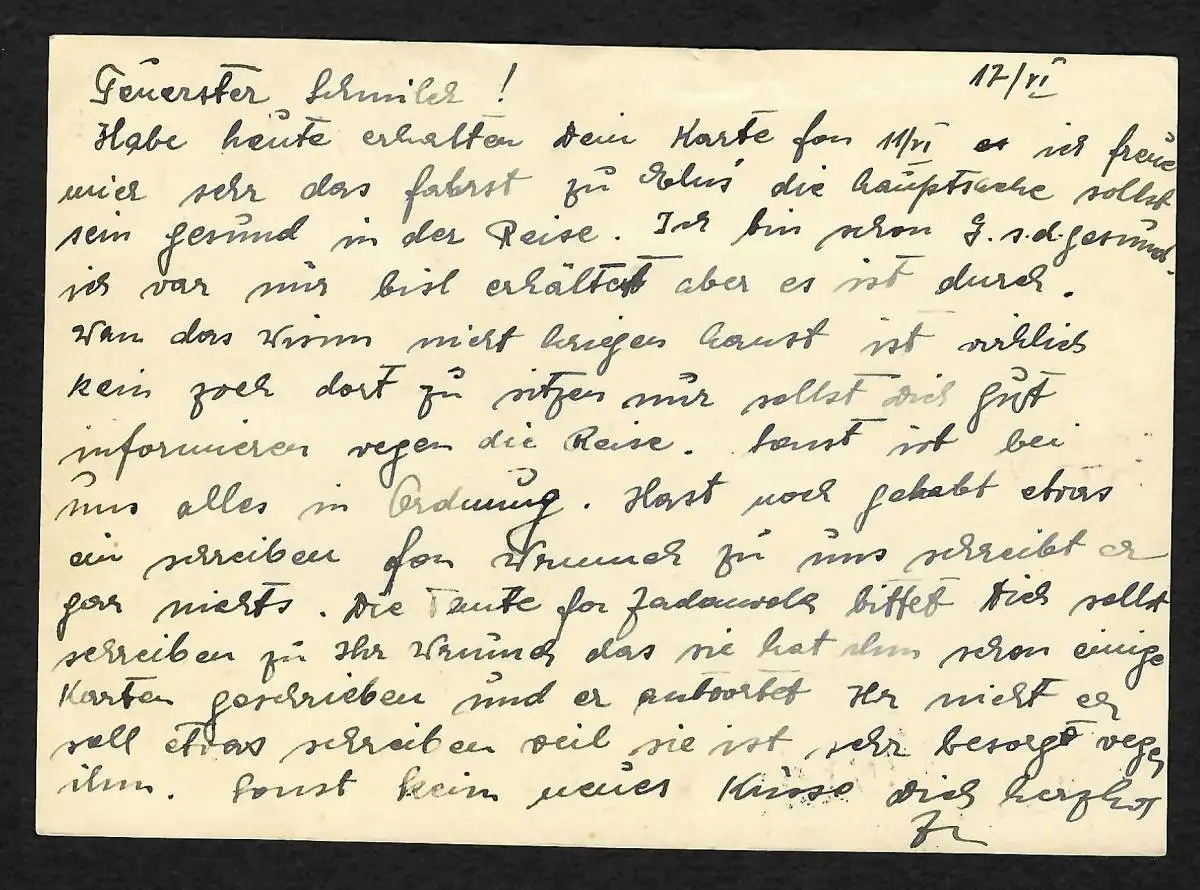 Teuerster Schmilek! 17/VI
Habe heute erhalten Dein Karte fon 11/VI es ich freue
mich sehr das fahrst zu die hauptsache sollst
sein gesund in der Reise. Ich bin schon G.s.d. gesund.
ich var nur bisl erhältet aber es ist durch.
Wan das Wisum nicht krigen kanst ist virklich
kein zveck dort zu sitzen nur sollst Dich gut
informieren vegen die Reise. Sonst ist bei
uns alles in Ordnung. Hast noch gehabt etvas
ein schreiben fon zu uns schreibt er
gar nichts. Die Tante fon bittet Dich sollst
schreiben zu Ihr das sie hat ihm schon einige
Karten geschrieben und er antvortet Ihr nicht er
soll etvas schreiben veil sie ist sehr besorgt vegen
ihm. Sonst kein neues Küsse Dich herzlich